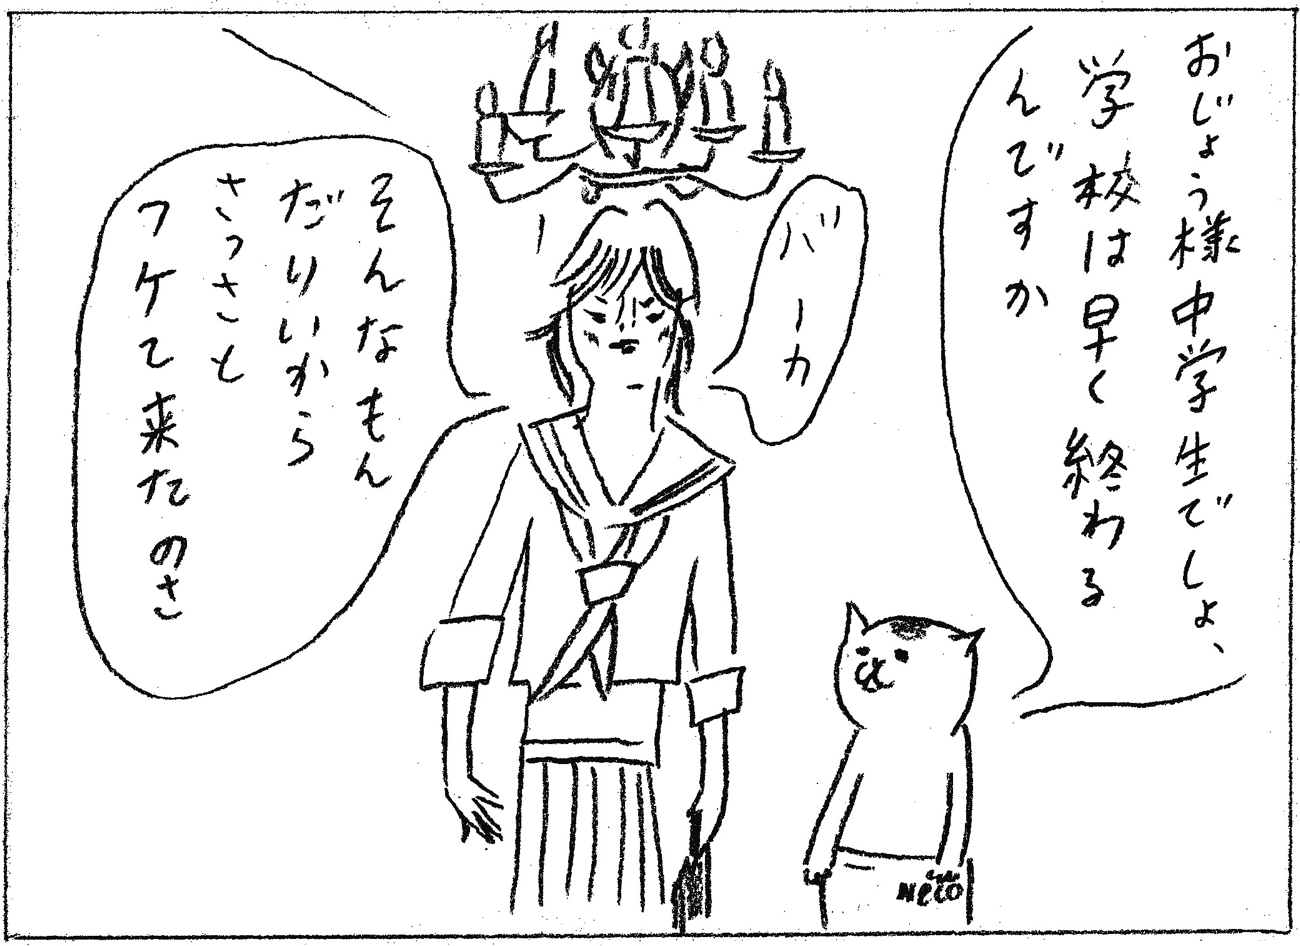 おじょう様中学生でしょ、
学校は早く終わる
んですか
バーカ
そんなもん
だりいから
さっさと
フケて来たのさ
NECO